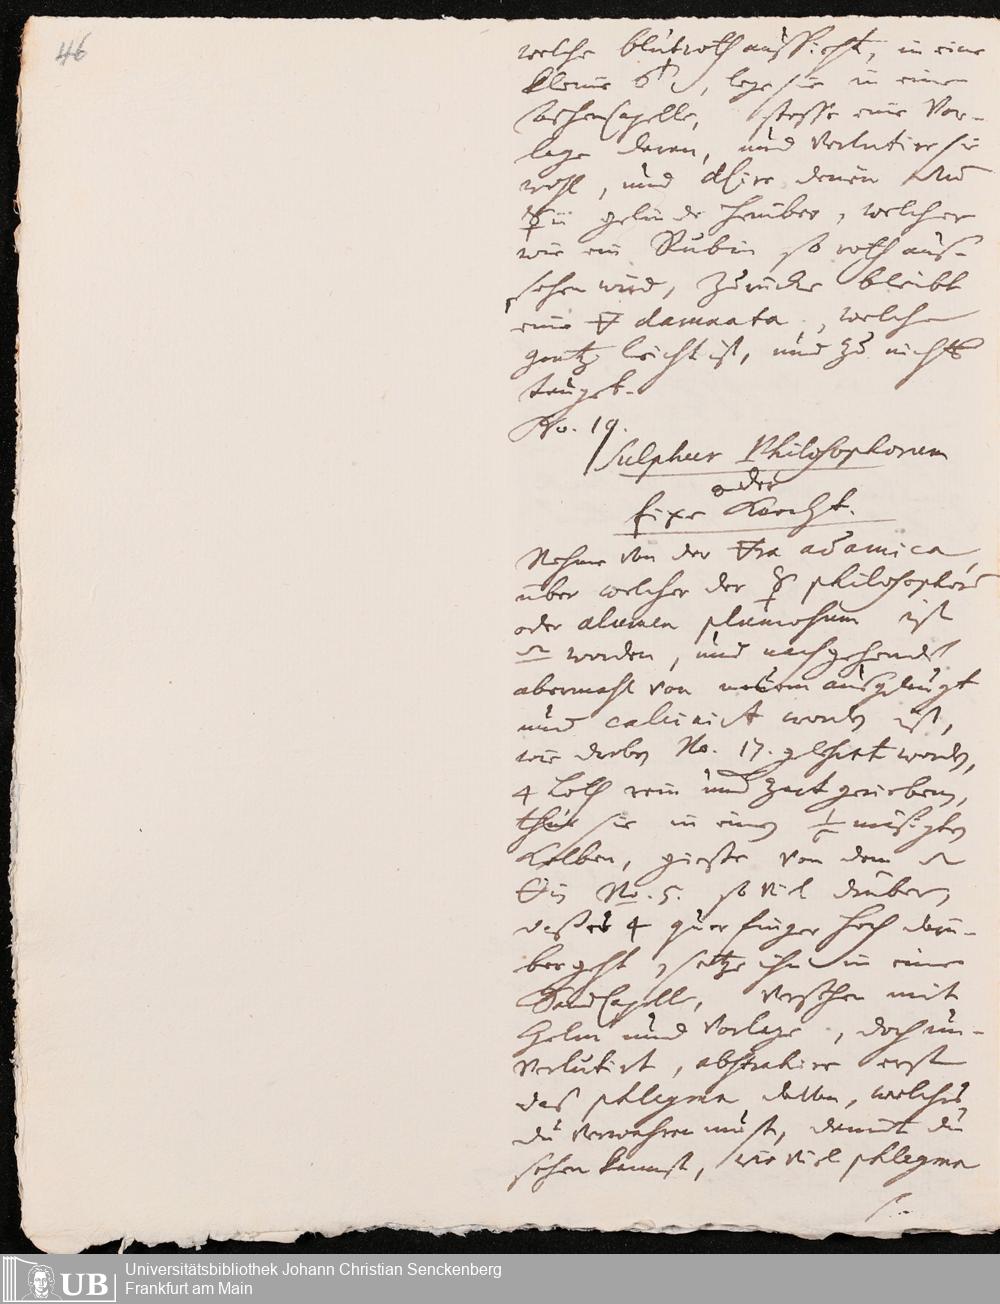 46
welche blutroth aussieht, in eine
kleine, lege sie in eine
Aschencapelle, stosse eine Vor-
lage daran, und verlutire sie
wohl, und ☿ gelinde herüber, welcher
wie ein Rubin so roth aus-
sehen wird, zurücke bleibt
eine damnata, welche
gantz leicht ist, und zu nichts
tauget.
No. 19.
Sulphur Philosophorum
oder
fixe Knecht.
Nehme von der 🜃ra adamica,
über welcher der philosophor
oder alumen plumosum ist
worden, und nachgehends
abermahl von neuem ausgelaugt
und calcinirt worden ist,
wie droben No. 17. gelehrt worden,
4 Loth rein und zart gerieben,
thue sie in einen mäsigen
Kolben, giesse von dem
No. 5. so viel drüber,
daß es 4 quer finger hoch darü-
ber geht, setze ihn in eine
Sandcapelle, versehen mit
Helm und Vorlage, doch un-
verlutirt, abstrahire erst
das phlegma davon, welches
du verwahren must, damit du
sehen kannst, wie viel phlegma
UB
Universitätsbibliothek Johann Christian Senckenberg
Frankfurt am Main